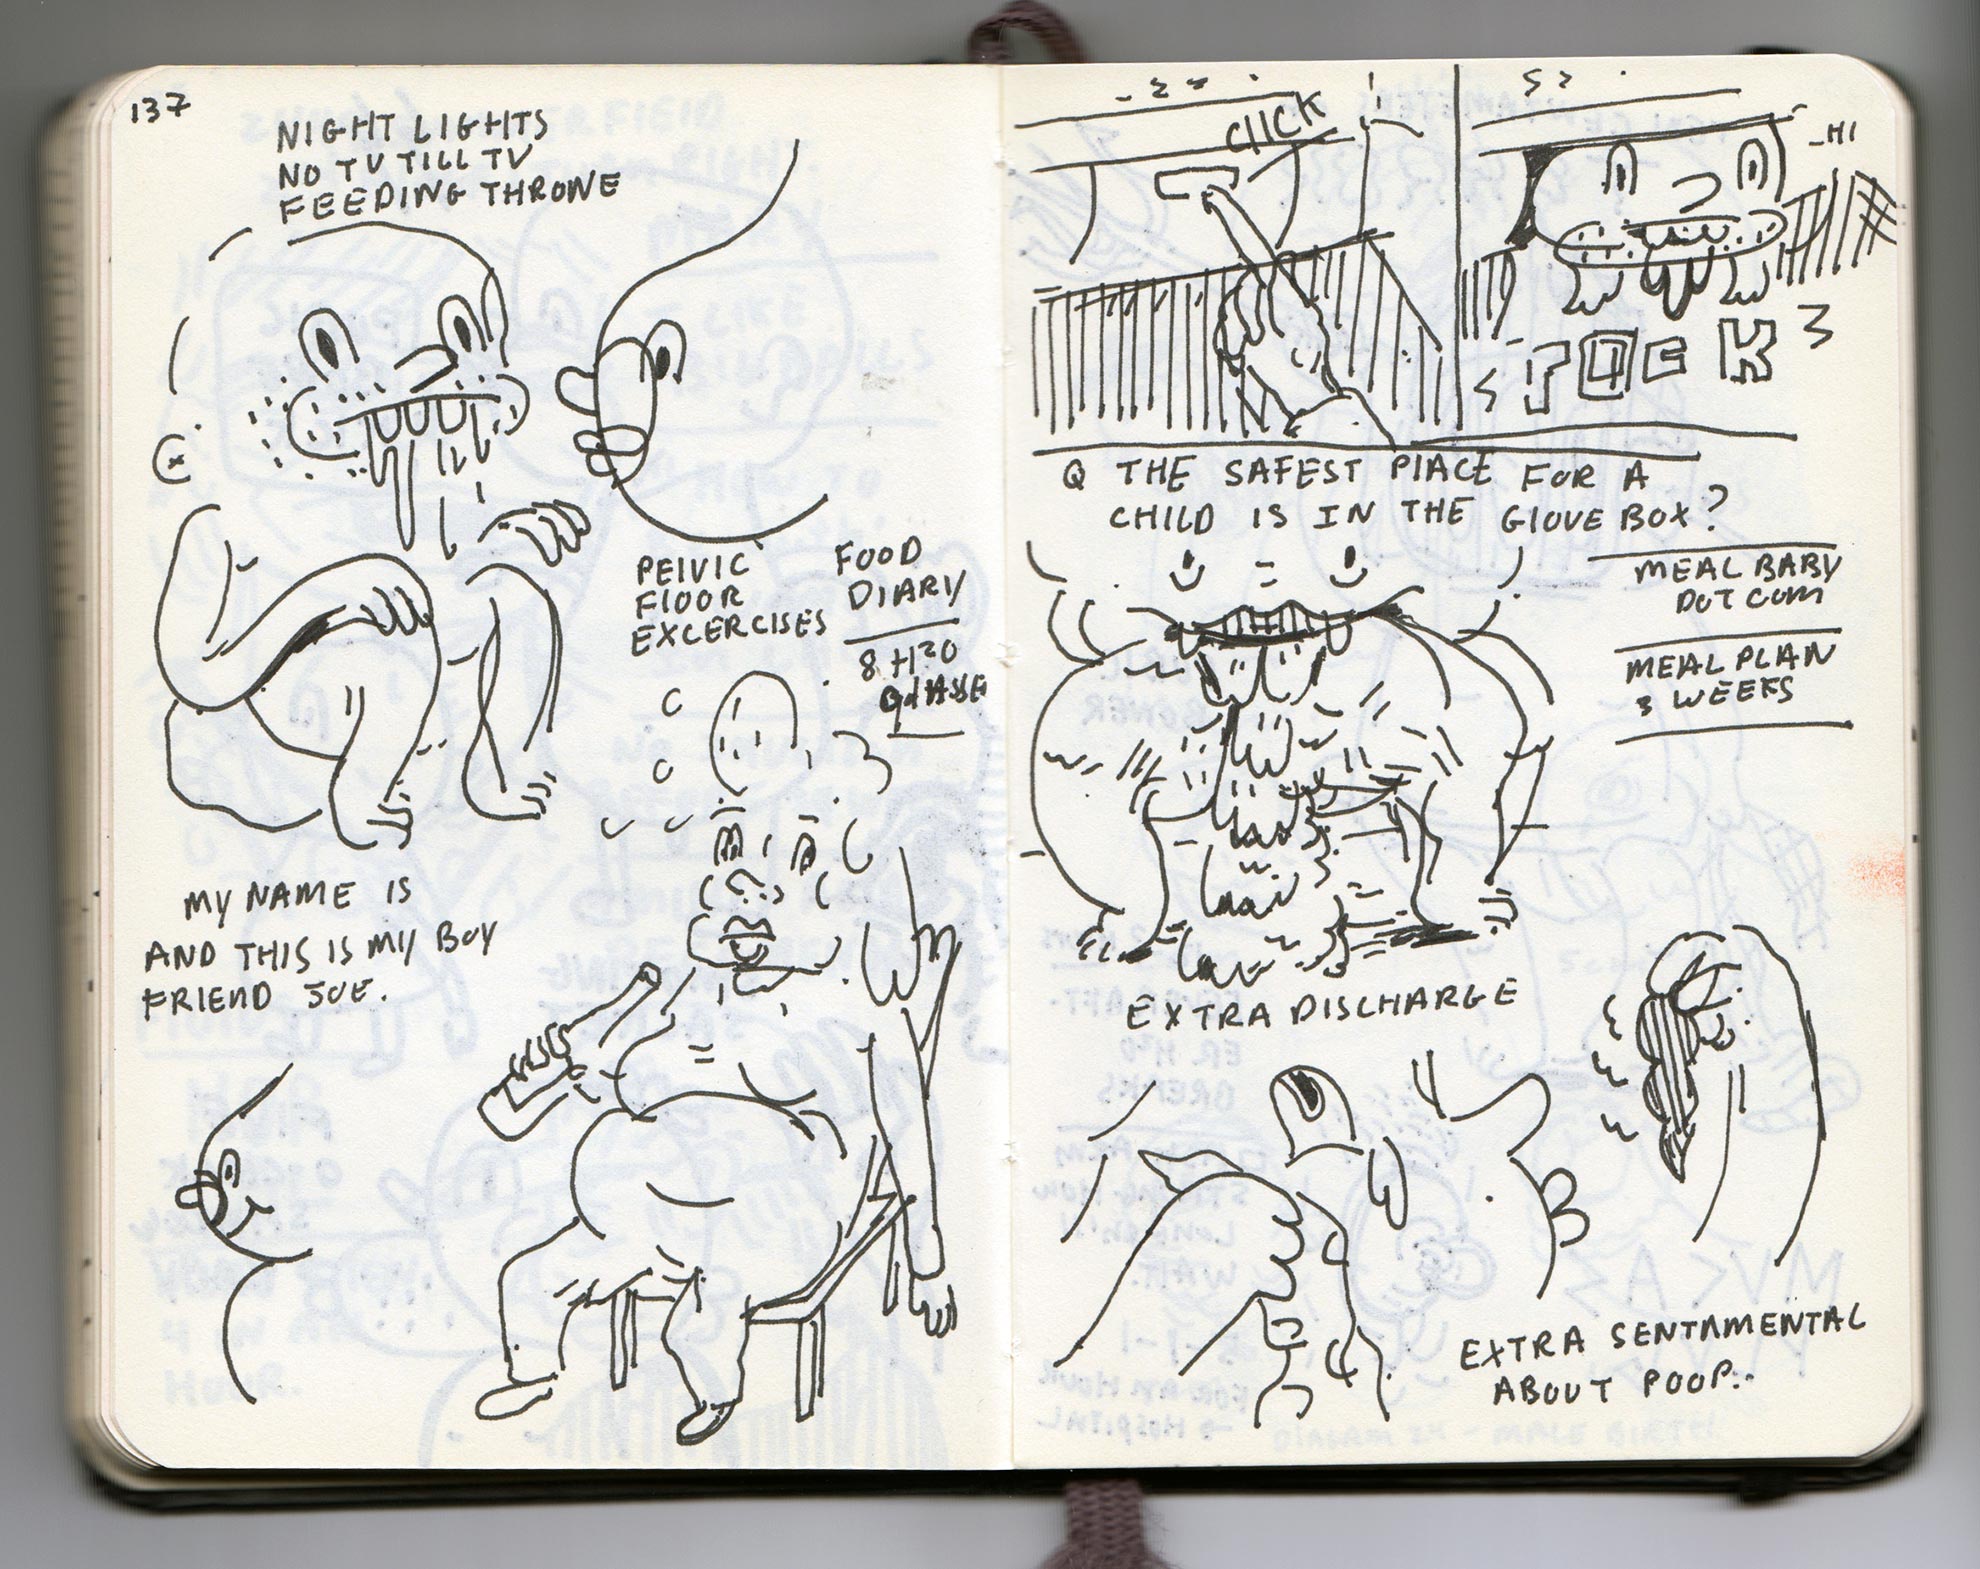 137
NIGHT LIGHTS
NO TV TILL TV
FEEDING THRONE
PELVIC
FLOOR
EXCERCISES
FOOD
DIARY
8 H2O
MY NAME IS
AND THIS IS MY BOY
FRIEND JOE.
CLICK
HI
Q THE SAFEST PLACE FOR A
CHILD IS IN THE GLOVE BOX?
MEAL BABY
DOT COM
MEAL PLAN
3 WEEKS
EXTRA DISCHARGE
EXTRA SENTAMENTAL
ABOUT POOP..